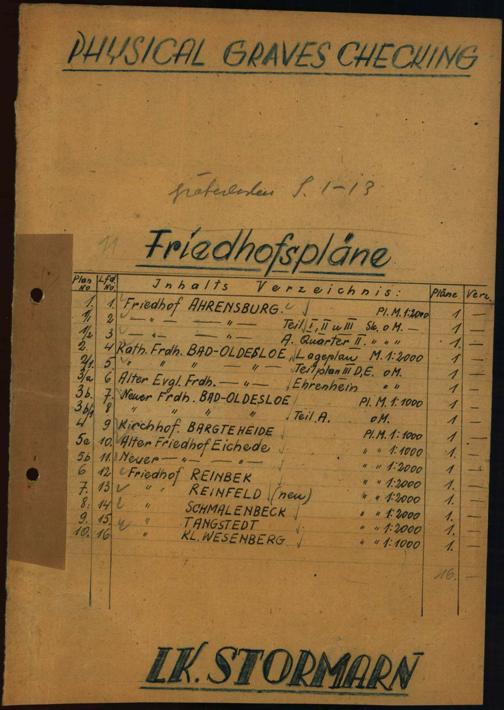 PHYSICAL GRAVES CHECKING
S. 1-13
11
Friedhofspläne
Plan No. Lfd. No. Inhalts Verzeichnis: Pläne Verz.
1. 1. Friedhof AHRENSBURG Pl. M. 1:2000 1 —
1/1 2 — " — " — Teil I, II u III Sk. o M. — 1 —
1/2 3 — " — " — A. Quartier II. " " " 1 —
2. 4 Kath. Frdh. BAD-OLDESLOE, Lageplan M. 1:2000 1 —
2/1 5 " " " — " — Teilplan III D,E. oM. 1 —
3/a 6 Alter Evgl. Frdh. — " — Ehrenhein " " 1 —
3b. 7. Neuer Frdh. BAD-OLDESLOE Pl. M. 1:1000 1 —
3b/1 8 " " " " Teil A. oM. 1 —
4 9 Kirchhof BARGTEHEIDE Pl. M. 1:1000 1 —
5a 10. Alter Friedhof Eichede " " 1:1000 1 —
5b 11. Neuer — " — " — " " 1:2000 1 —
6 12 Friedhof REINBEK " " 1:2000 1. —
7. 13 " REINFELD (neu) " " 1:2000 1. —
8. 14 " SCHMALENBECK " " 1:2000 1. —
9. 15 " TANGSTEDT " " 1:2000 1. —
10. 16 " KL. WESENBERG " " 1:1000 1. —
16. —
LK. STORMARN